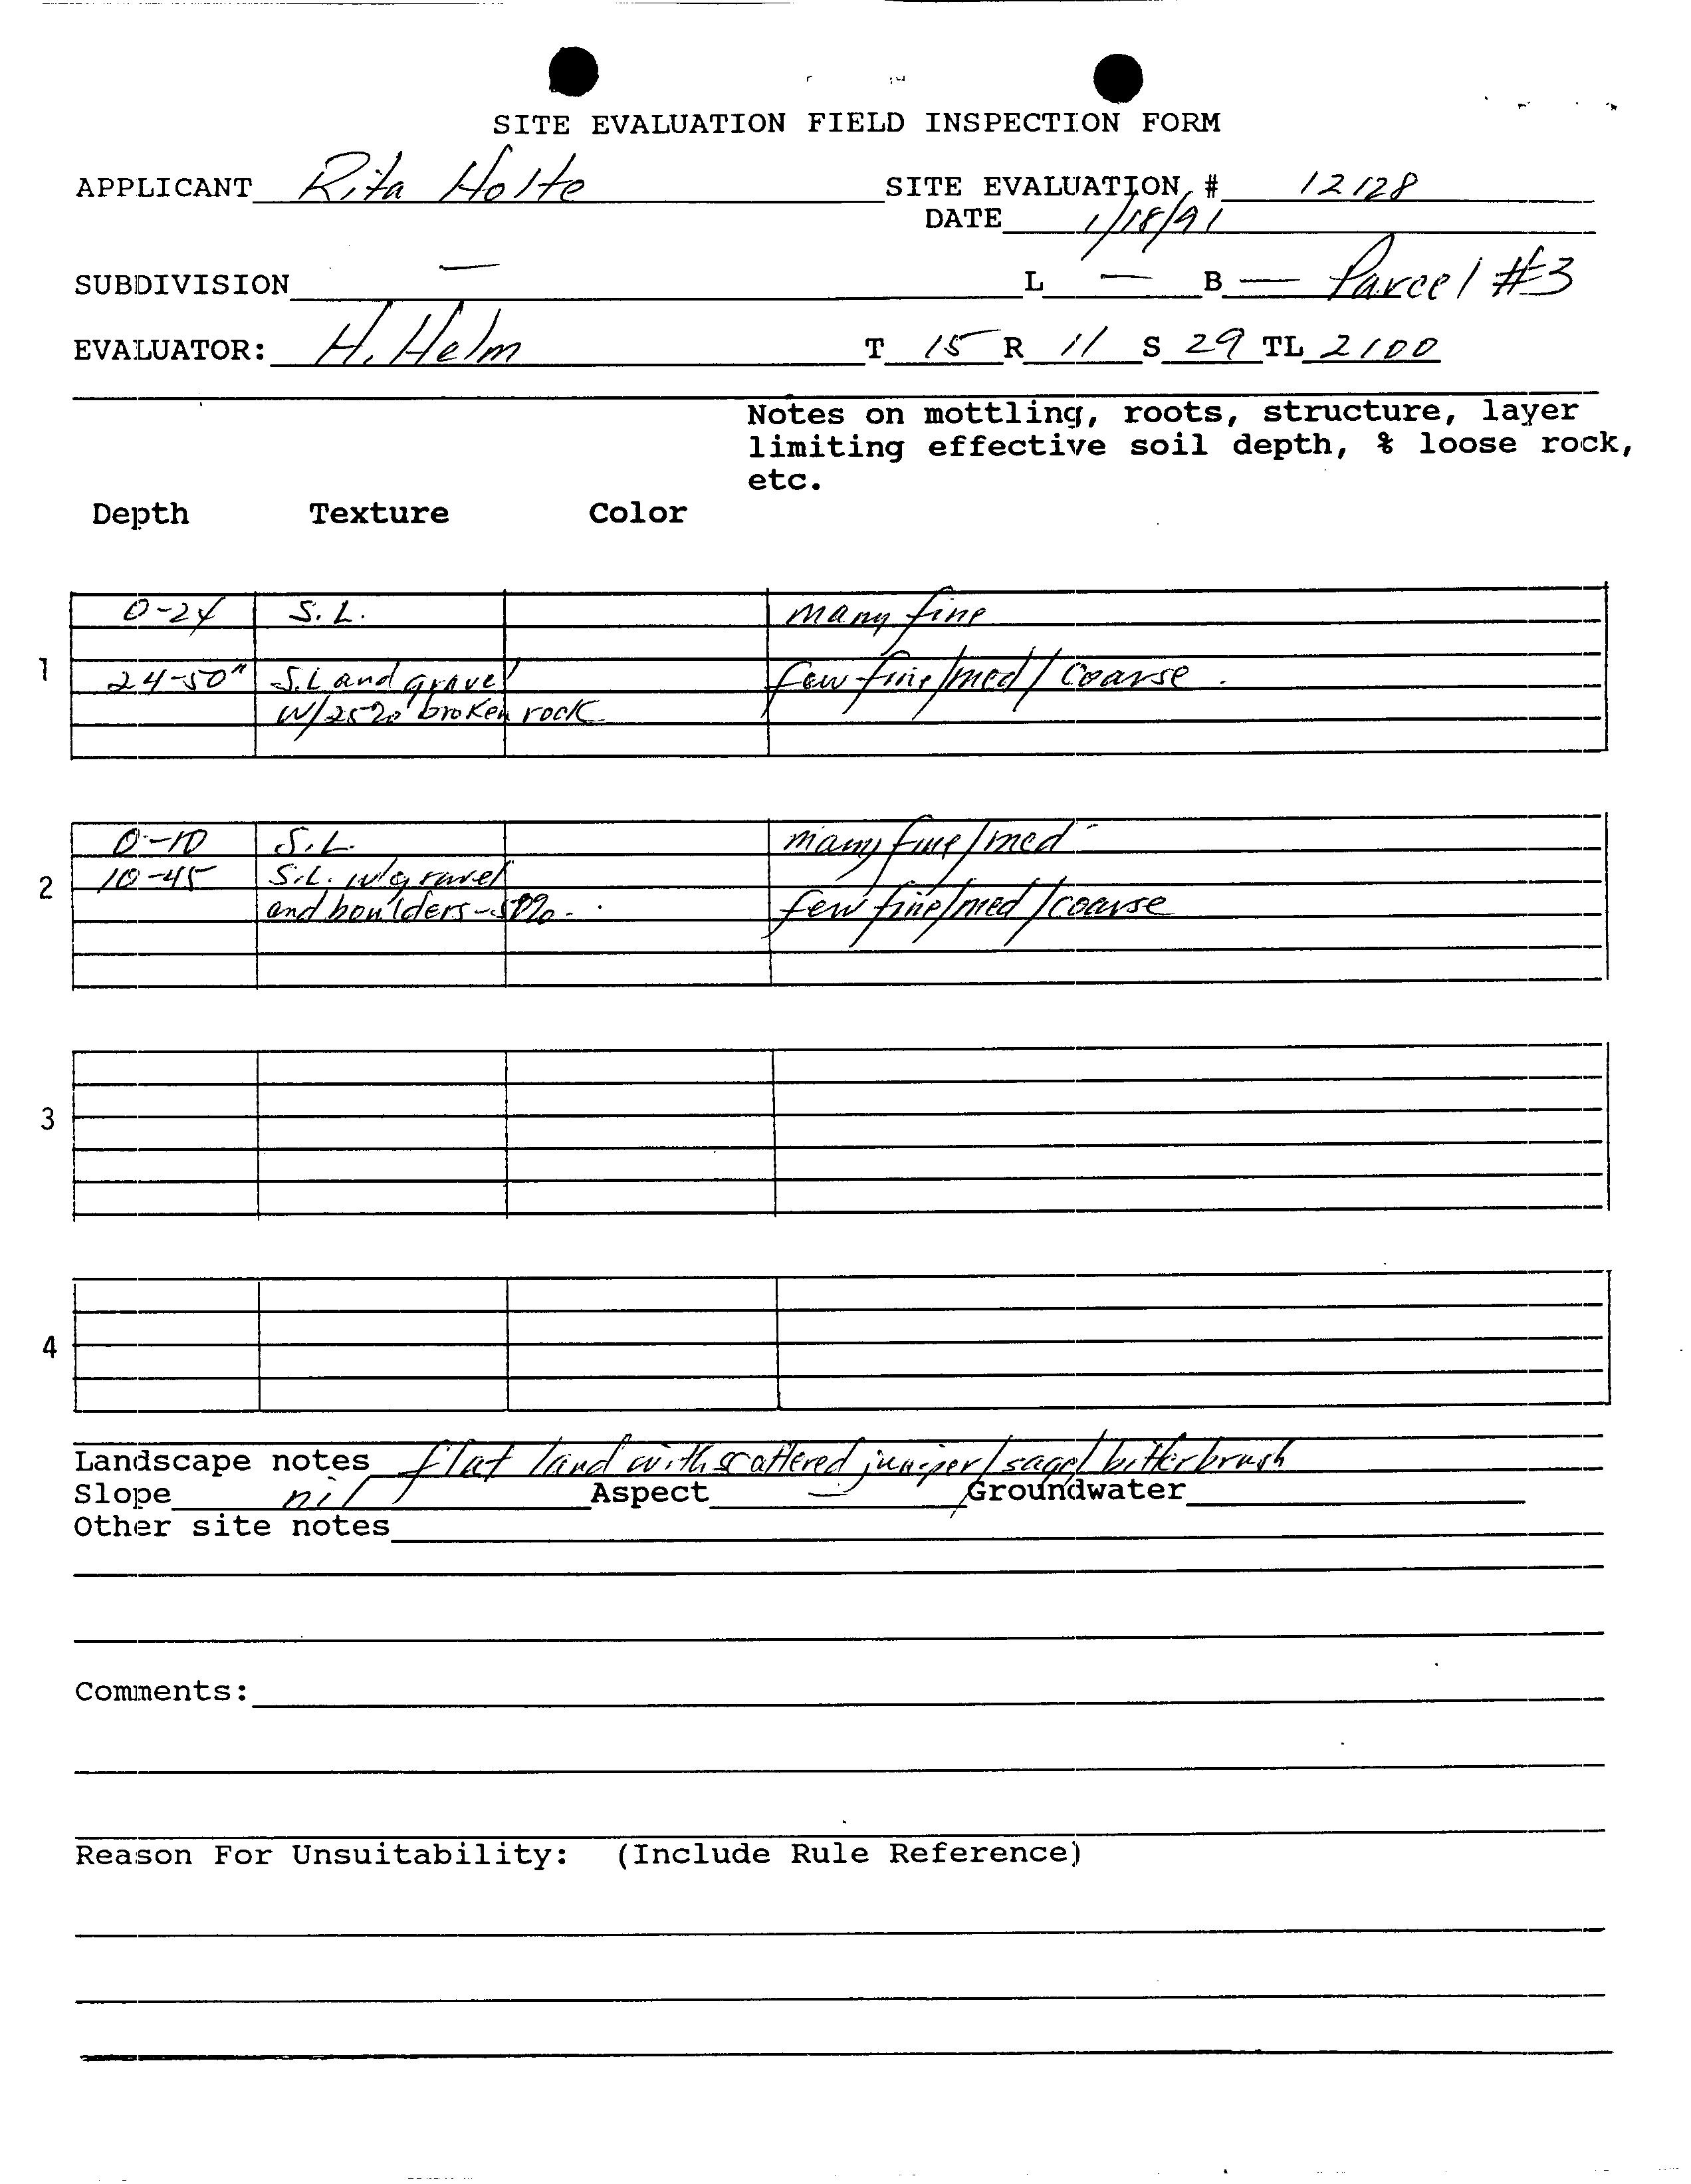 SITE EVALUATION FIELD INSPECTION FORM
APPLICANT Rita Holte SITE EVALUATION # 12128
DATE 1/18/91
SUBDIVISION — L — B — Parcel #3
EVALUATOR: H. Helm T 15 R 11 S 29 TL 2100
Notes on mottling, roots, structure, layer
limiting effective soil depth, % loose rock,
etc.
Depth Texture Color
0-24 S.L. many fine
1 24-50" S.L and gravel few fine/med/coarse
W/25% broken rock
0-10 S.L. many fine/med
2 10-45 S.L. w/gravel
and boulders-50% few fine/med/coarse
3
4
Landscape notes flat land with scattered juniper/sage/bitterbrush
Slope nil Aspect — Groundwater
Other site notes
Comments:
Reason For Unsuitability: (Include Rule Reference)